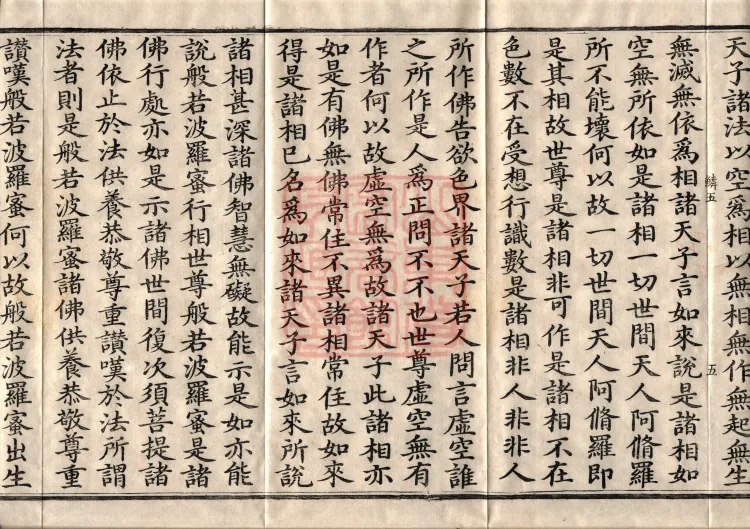 天子諸法以空爲相以無相無作無起無生
鱗五
五
無滅無依爲相諸天子言如來說是諸相如
空無所依如是諸相一切世間天人阿脩羅
所不能壞何以故一切世間天人阿脩羅即
是其相故世尊是諸相非可作是諸相不在
色數不在受想行識數是諸相非人非非人
所作佛告欲色界諸天子若人問言虛空誰
之所作是人爲正問不不也世尊虛空無有
作者何以故虛空無爲故諸天子此諸相亦
如是有佛無佛常住不異諸相常住故如來
得是諸相已名爲如來諸天子言如來所說
諸相甚深諸佛智慧無礙故能示是如亦能
說般若波羅蜜行相世尊般若波羅蜜是諸
佛行處亦如是示諸佛世間復次須菩提諸
佛依止於法供養恭敬尊重讚嘆於法所謂
法者則是般若波羅蜜諸佛供養恭敬尊重
讚嘆般若波羅蜜何以故般若波羅蜜出生